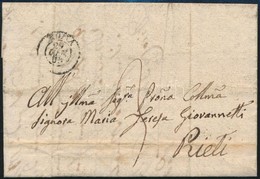 ROMA
All Illma Sigra Prona Colma
Signora Maria Teresa Giovannetti
Rieti